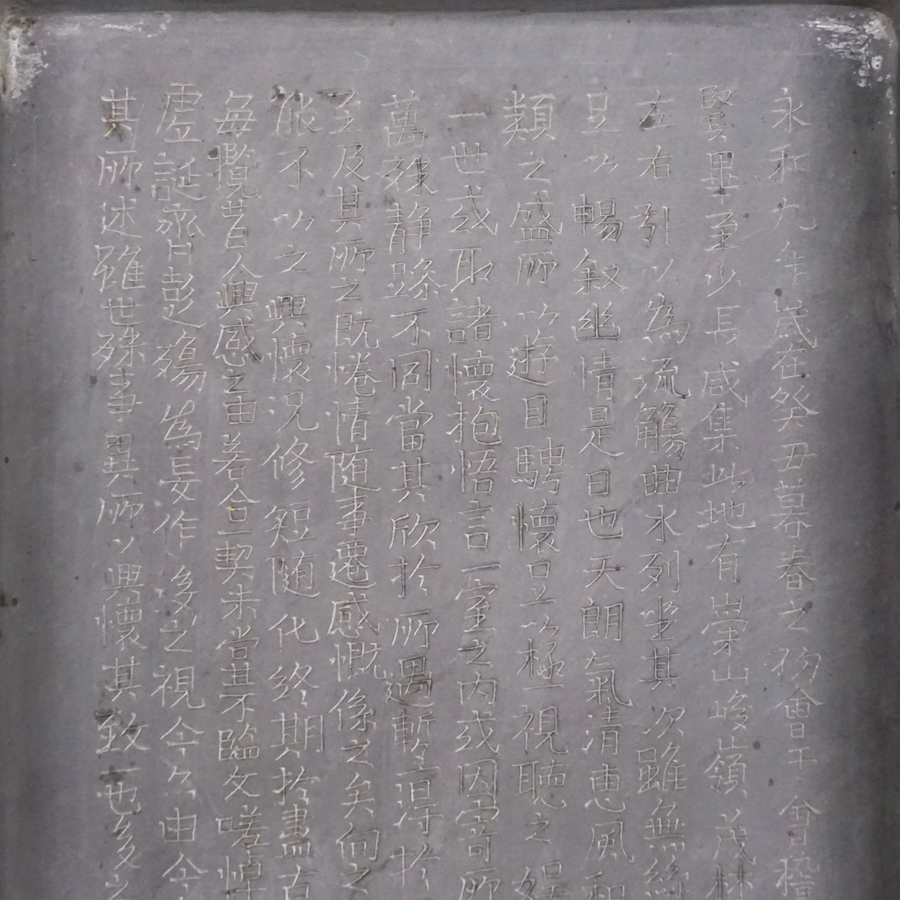 永和九年歲在癸丑暮春之初會于會稽
賢畢至少長咸集此地有崇山峻嶺茂林
左右引以為流觴曲水列坐其次雖無絲
足以暢叙幽情是日也天朗氣清惠風和
類之盛所以遊目騁懷足以極視聽之娛
一世或取諸懷抱悟言一室之內或因寄所
萬殊静躁不同當其欣於所遇暫得於
至及其所之既惓情随事遷感慨係之矣向之
能不以之興懷況修短随化終期於盡古
每覽昔人興感之由若合一契未嘗不臨文嗟悼
虛誕齊彭殤為妄作後之視今亦由今
其所述雖世殊事異所以興懷其致一也後之